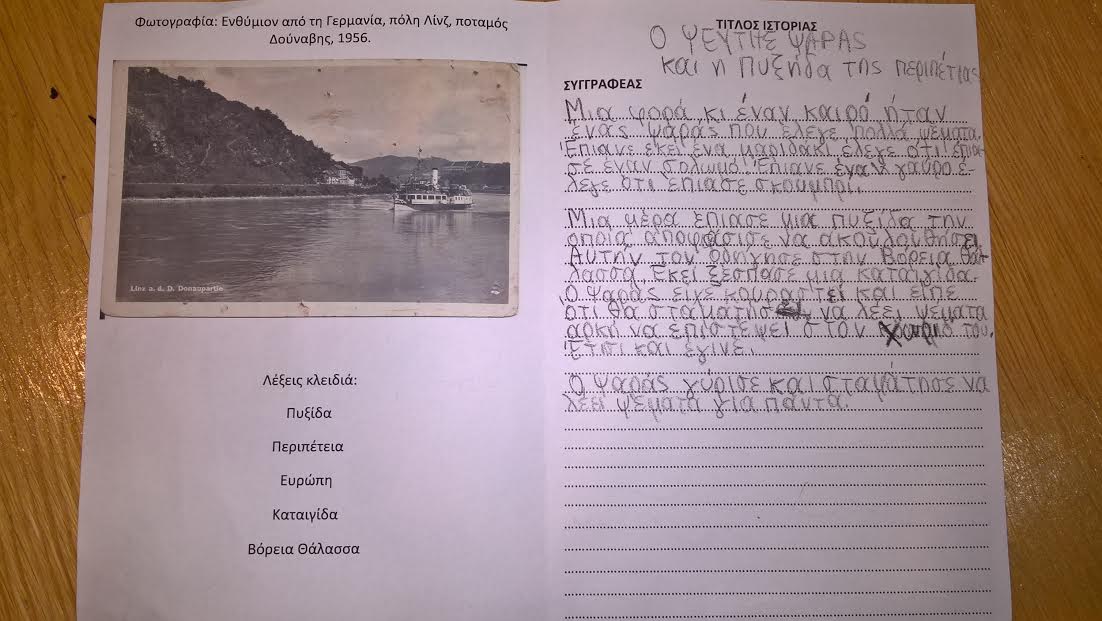 Φωτογραφία: Ενθύμιον από τη Γερμανία, πόλη Λίνζ, ποταμός
Δούναβης, 1956.
Linz a. d. D. Donaupartie
Λέξεις κλειδιά:
Πυξίδα
Περιπέτεια
Ευρώπη
Καταιγίδα
Βόρεια Θάλασσα
ΤΙΤΛΟΣ ΙΣΤΟΡΙΑΣ
Ο ΨΕΥΤΗΣ ΨΑΡΑΣ
και η πυξήδα της περιπέτιας
ΣΥΓΓΡΑΦΕΑΣ
Μια φορά κι έναν καιρό ήταν
ένας ψαράς που έλεγε πολλά ψέματα.
Έπιανε εκεί ένα μαριδάκι έλεγε ότι έπια-
σε έναν σολωμό. Έπιανε έναν γαύρο έ-
λεγε ότι έπιασε σκουμπρί.
Μια μέρα έπιασε μια πυξίδα την
οποία αποφάσισε να ακουλουθήσει
Αυτήν τον οδήγησε στην Βόρεια Θά-
λασσα. Εκεί ξέσπασε μια καταιγίδα.
Ο ψαράς είχε κουραστεί και είπε
ότι θα σταματήσει να λέει ψέματα
αρκή να επιστέψει στον χωριό του.
Έτσι και έγινε.
Ο ψαράς γύρισε και σταμάτησε να
λέει ψέματα για πάντα.